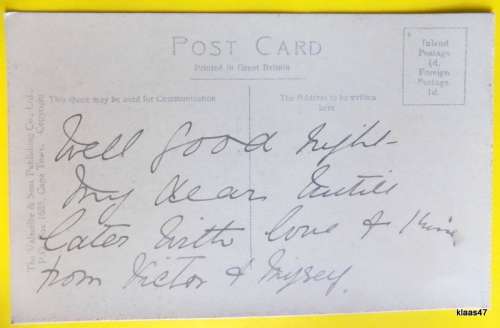 POST CARD
Printed in Great Britain
Inland
Postage
½d.
Foreign
Postage
1d.
This space may be used for Communication
The Address to be written
here
The Valentine & Sons Publishing Co., Ltd.,
P.O. Box 1685, Cape Town. Copyright
Well Good Night-
My dear Until
Later With love &
from Victor &
klaas47